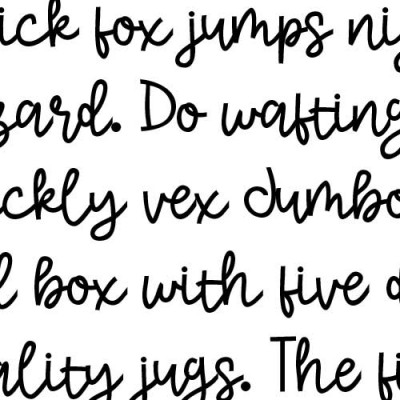 ick fox jumps ni
zard. Do wafting
ickly vex dumbo
l box with five d
ality jugs. The fi